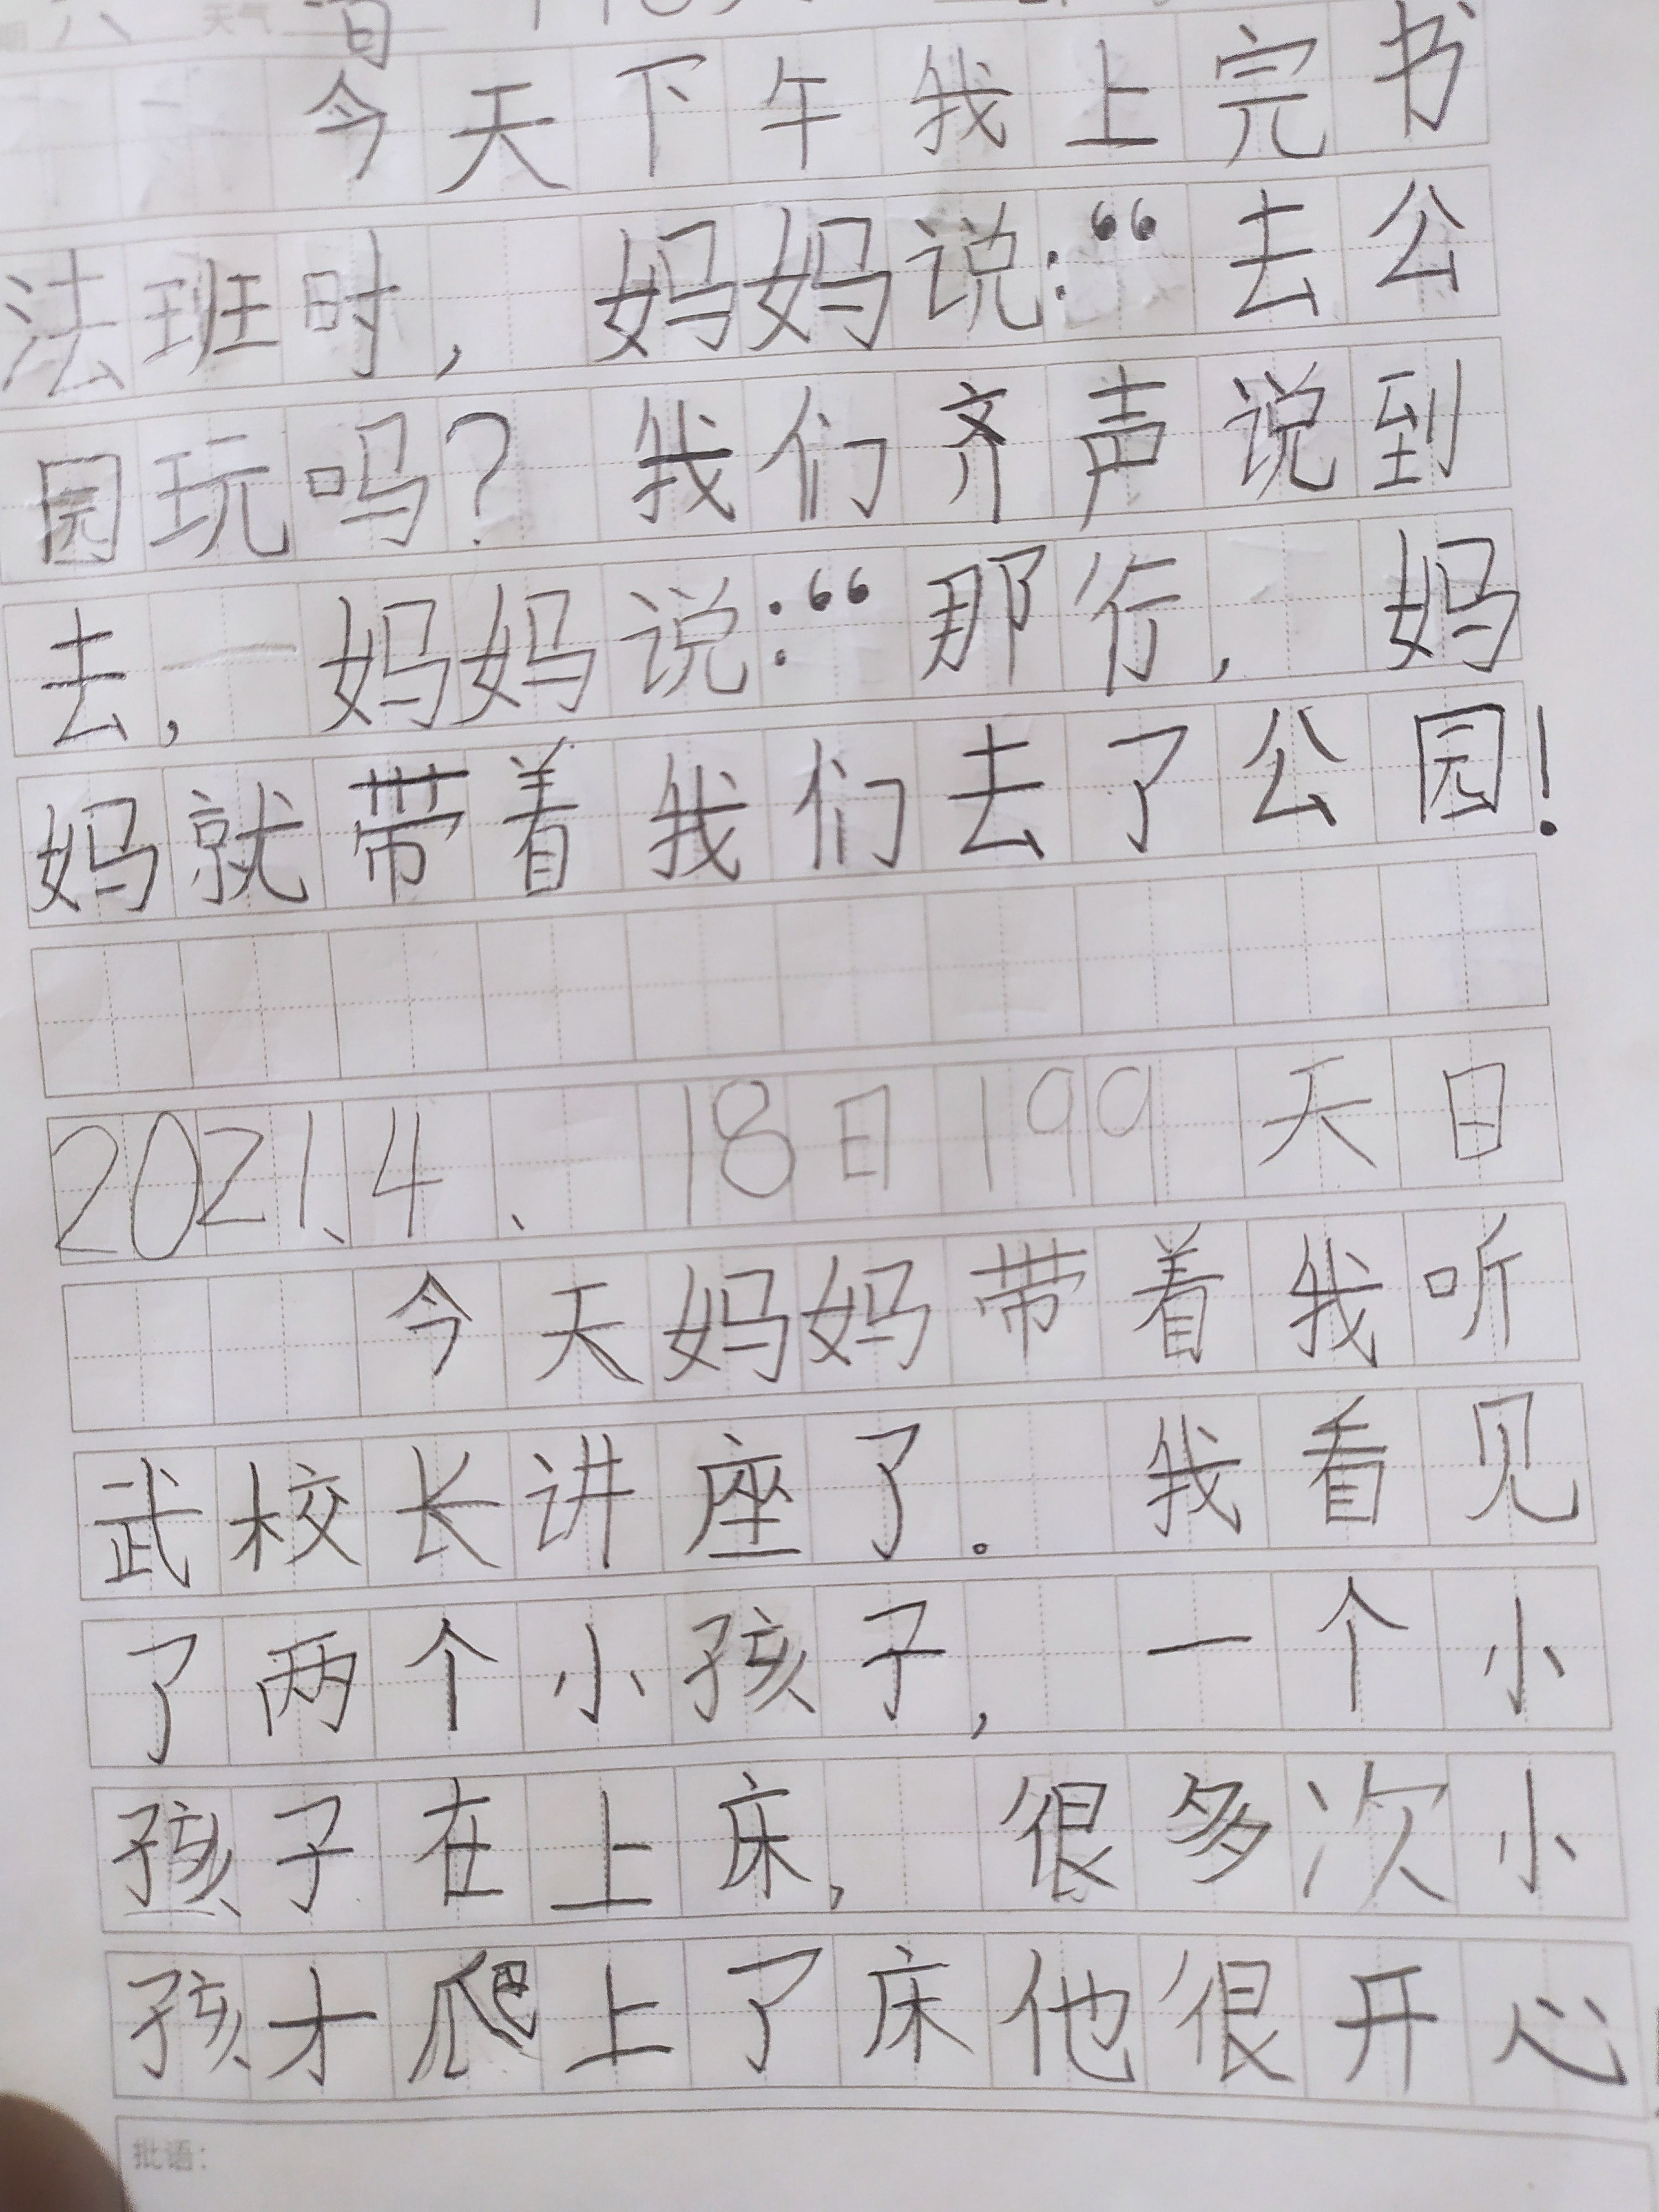 天气
今天下午我上完书
法班时，妈妈说：“去公
园玩吗？我们齐声说到
去，妈妈说：“那行，妈
妈就带着我们去了公园！
2021、4、18日199天日
今天妈妈带着我听
武校长讲座了。我看见
了两个小孩子，一个小
孩子在上床，很多次小
孩才爬上了床他很开心
批语：